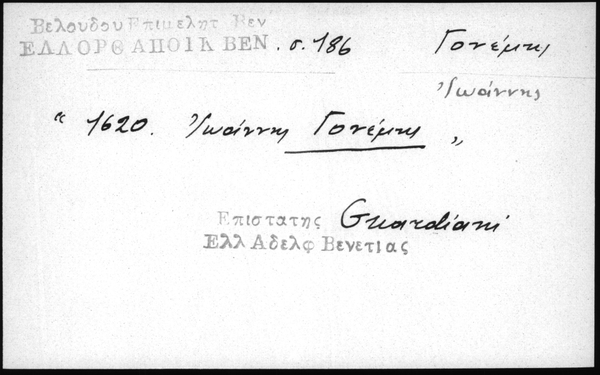 Βελουδου Επιμελητ Βεν
ΕΛΛ ΟΡΘ ΑΠΟΙΚ ΒΕΝ. σ. 186 Γονέμης
Ἰωάννης
“ 1620. Ἰωάννης Γονέμης „
Επιστατης Guardiani
Ελλ Αδελφ Βενετιας